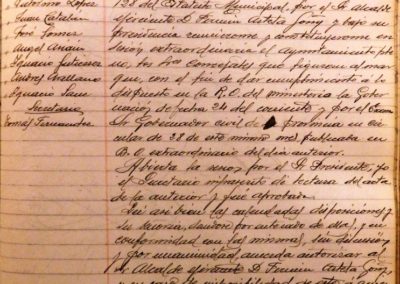 Antonio Lopez
Juan Catalan
José Gomez
Angel
Ignacio Gutierrez
Castro Orellano
Ignacio Sanz
Secretario
Tomas Fernandez
128 del Estatuto Municipal, por el Sr Alcalde
ejerciente D. Fermin y bajo su
Presidencia reunieronse y constituyeronse en
sesión extraordinaria el Ayuntamiento
los Sres Concejales que figuran al mar
gen, con el fin de dar cumplimiento á lo
dispuesto en la R.O. del ministerio la Gober
nación de fecha 24 del corriente y por el
Sr Gobernador civil de provincia en cir
cular de 28 de este mismo mes, publicada en
B. O. extraordinario del dia anterior.
Abierta la sesión, por el Sr Presidente, yo
el Secretario di lectura del acta
de la anterior y fué aprobada.
Lei asi bien las calendadas disposiciones y
la teoria, dandose por enterado de ellas, y en
conformidad con las mismas, sin discusión
y por unanimidad, acuerda autorizar al
Sr Alcalde ejerciente D. Fermin